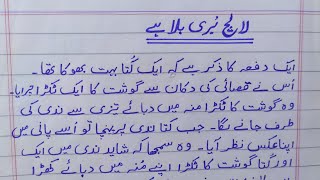 لالچ بُری بلا ہے
ایک دفعہ کا ذکر ہے کہ ایک کُتا بہت بھوکا تھا۔
اُس نے قصائی کی دکان سے گوشت کا ایک ٹکڑا چرایا۔
وہ گوشت کا ٹکڑا منہ میں دبائے تیزی سے ندی کی
طرف جانے لگا۔ جب کتا ندی پر پہنچا تو اُسے پانی میں
اپنا عکس نظر آیا۔ وہ سمجھا کہ شاید ندی میں ایک
اور کُتا گوشت کا ٹکڑا اپنے مُنہ میں دبائے کھڑا